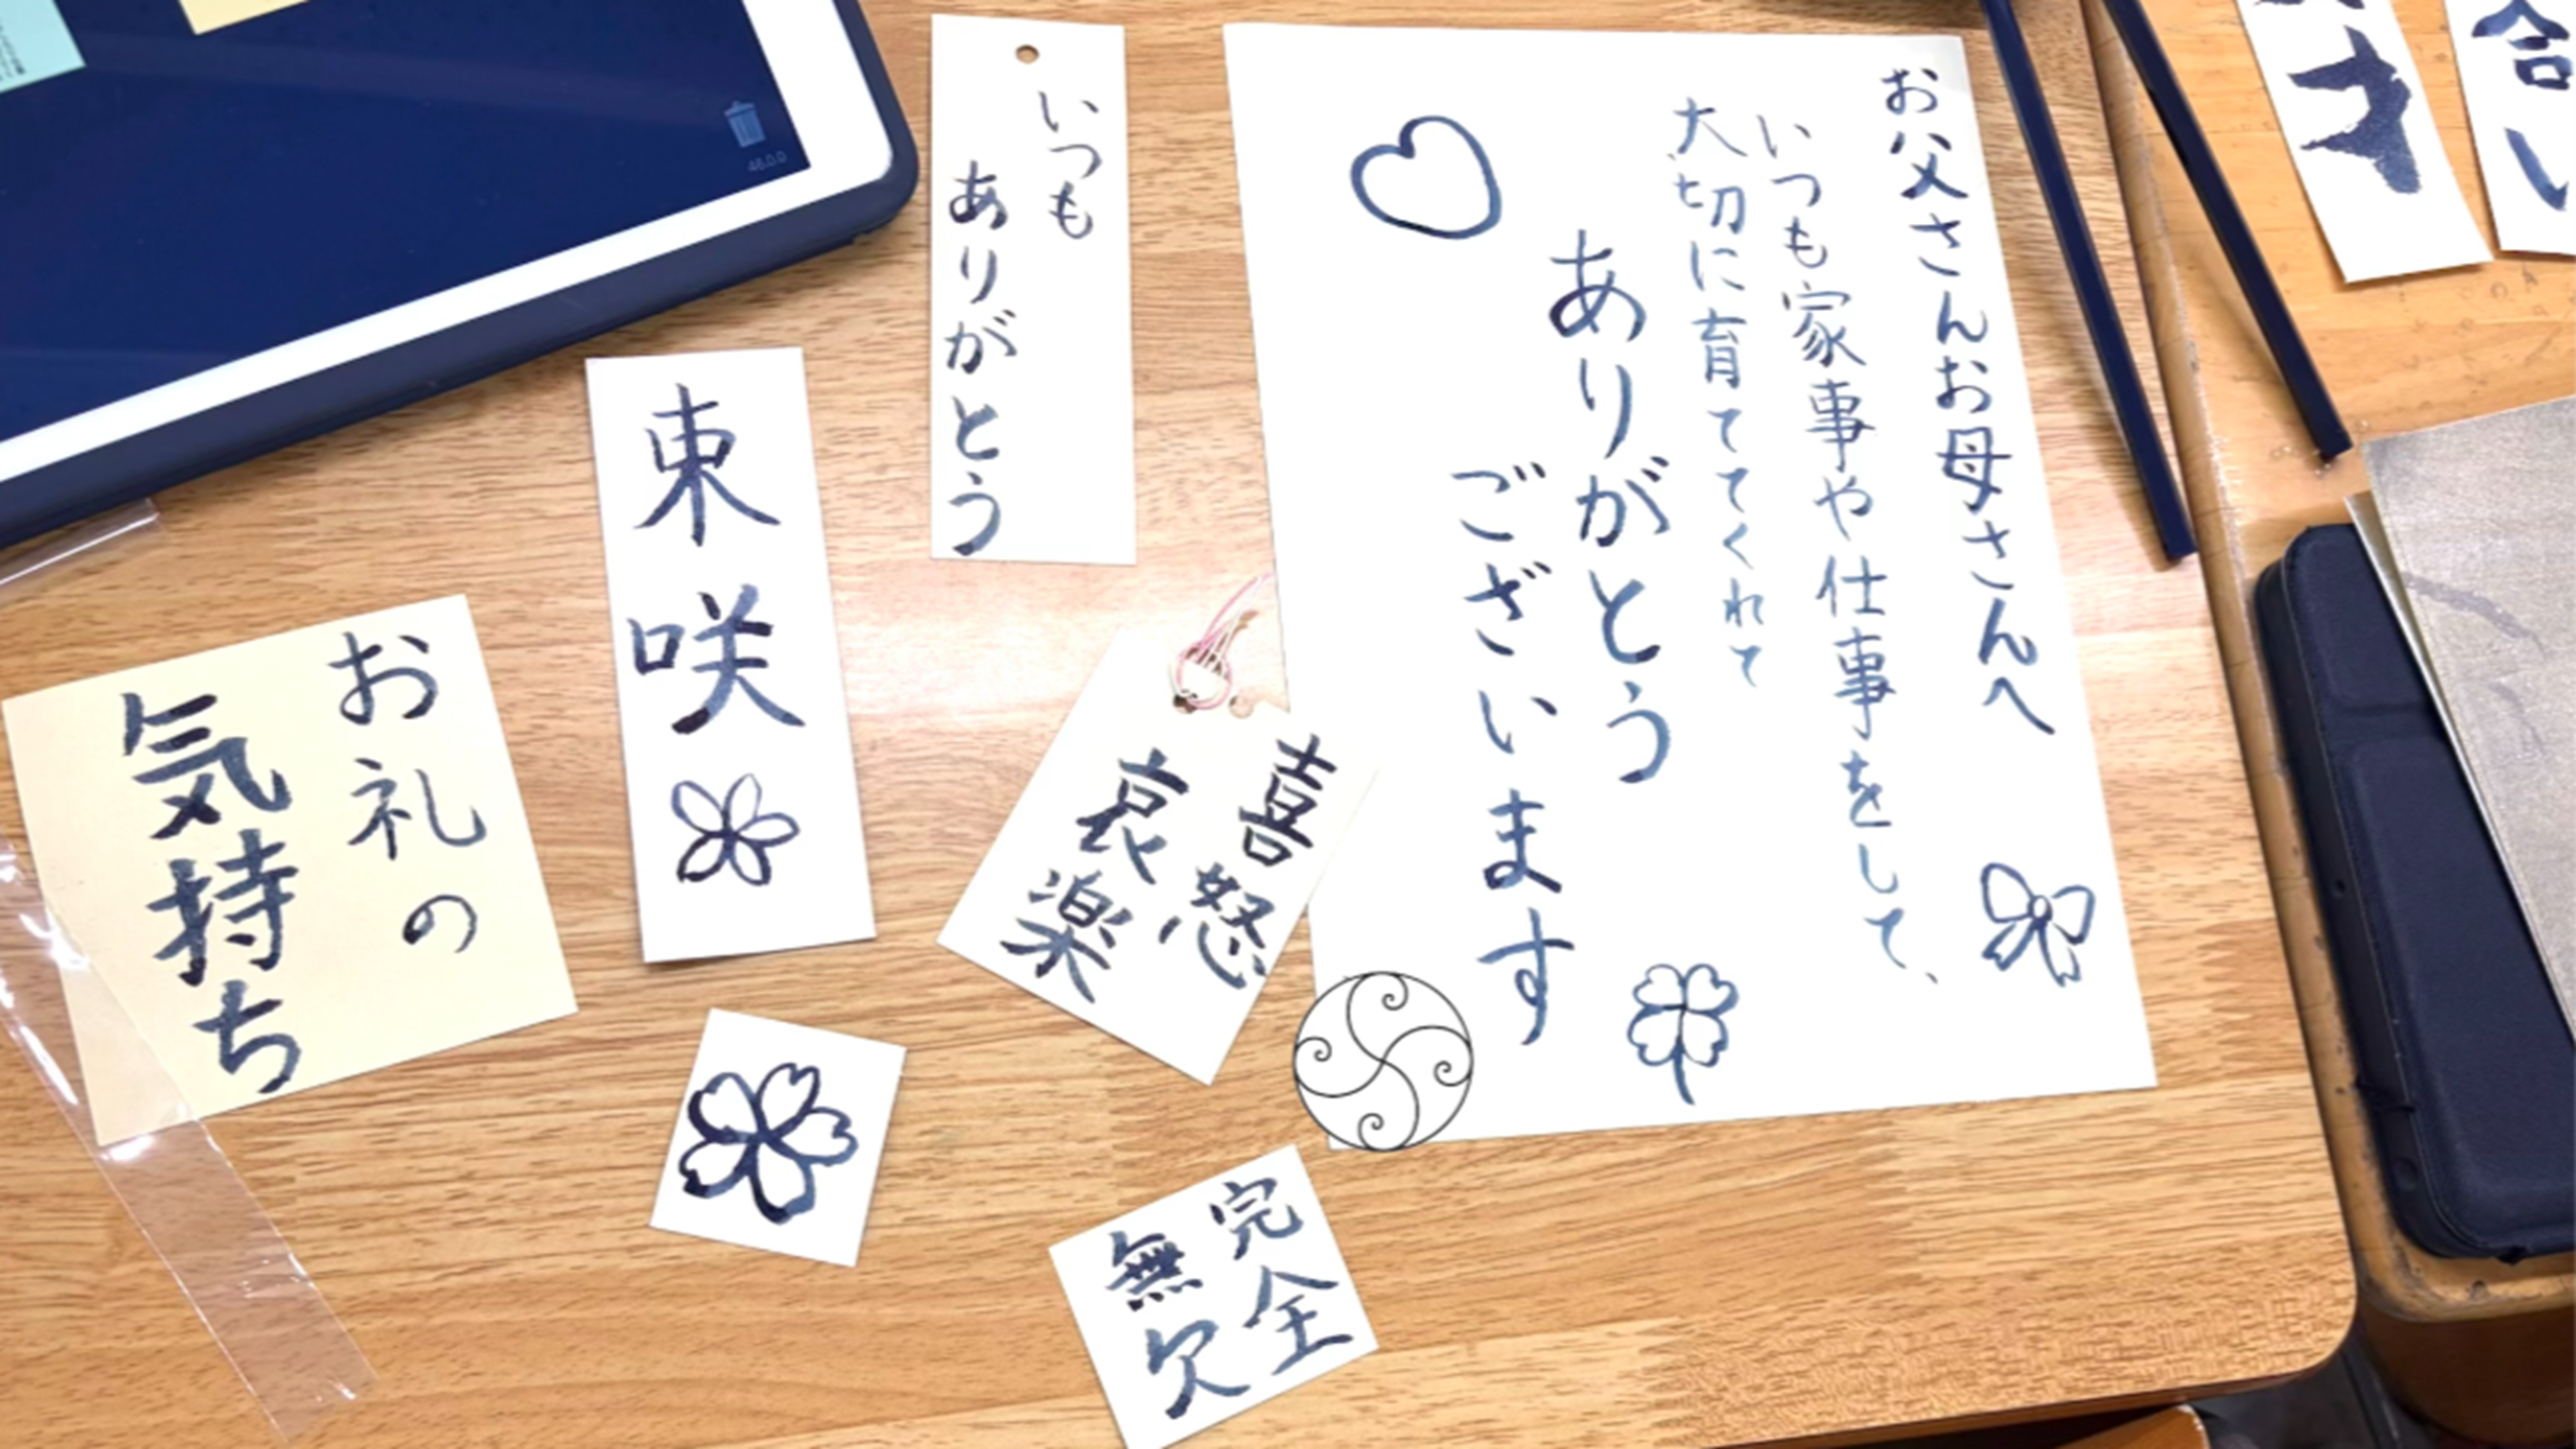 お父さんお母さんへ
いつも家事や仕事をして、
大切に育ててくれて
ありがとう
ございます
いつも
ありがとう
東咲
お礼の
気持ち
喜怒
哀楽
完全
無欠
合い
オ
46.0.0